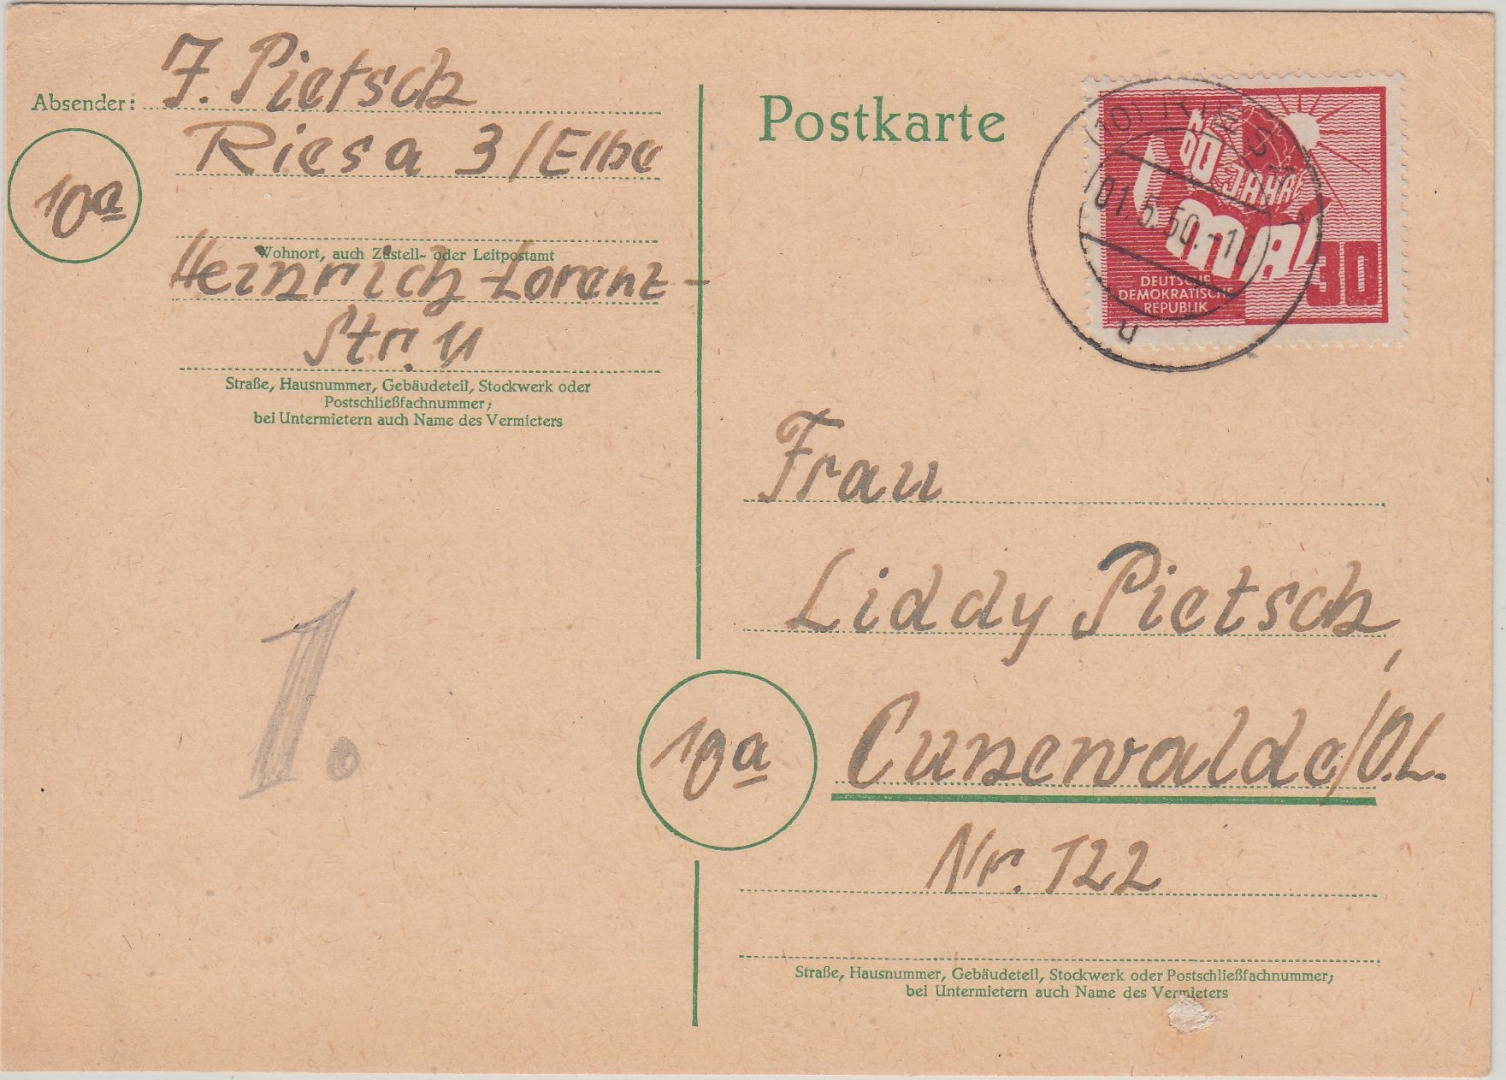 Absender: J. Pietsch
Riesa 3/Elbe
10a
Wohnort, auch Zustell- oder Leitpostamt
Heinrich-Lorenz-
Str. 11
Straße, Hausnummer, Gebäudeteil, Stockwerk oder
Postschließfachnummer;
bei Untermietern auch Name des Vermieters
1.
Postkarte
(10) RIESA
01.5.50.-10
60 JAHRE
1. MAI
30
DEUTSCHE
DEMOKRATISCHE
REPUBLIK
Frau
Liddy Pietsch,
10a
Cunewalde/O.L.
Nr. 122
Straße, Hausnummer, Gebäudeteil, Stockwerk oder Postschließfachnummer;
bei Untermietern auch Name des Vermieters